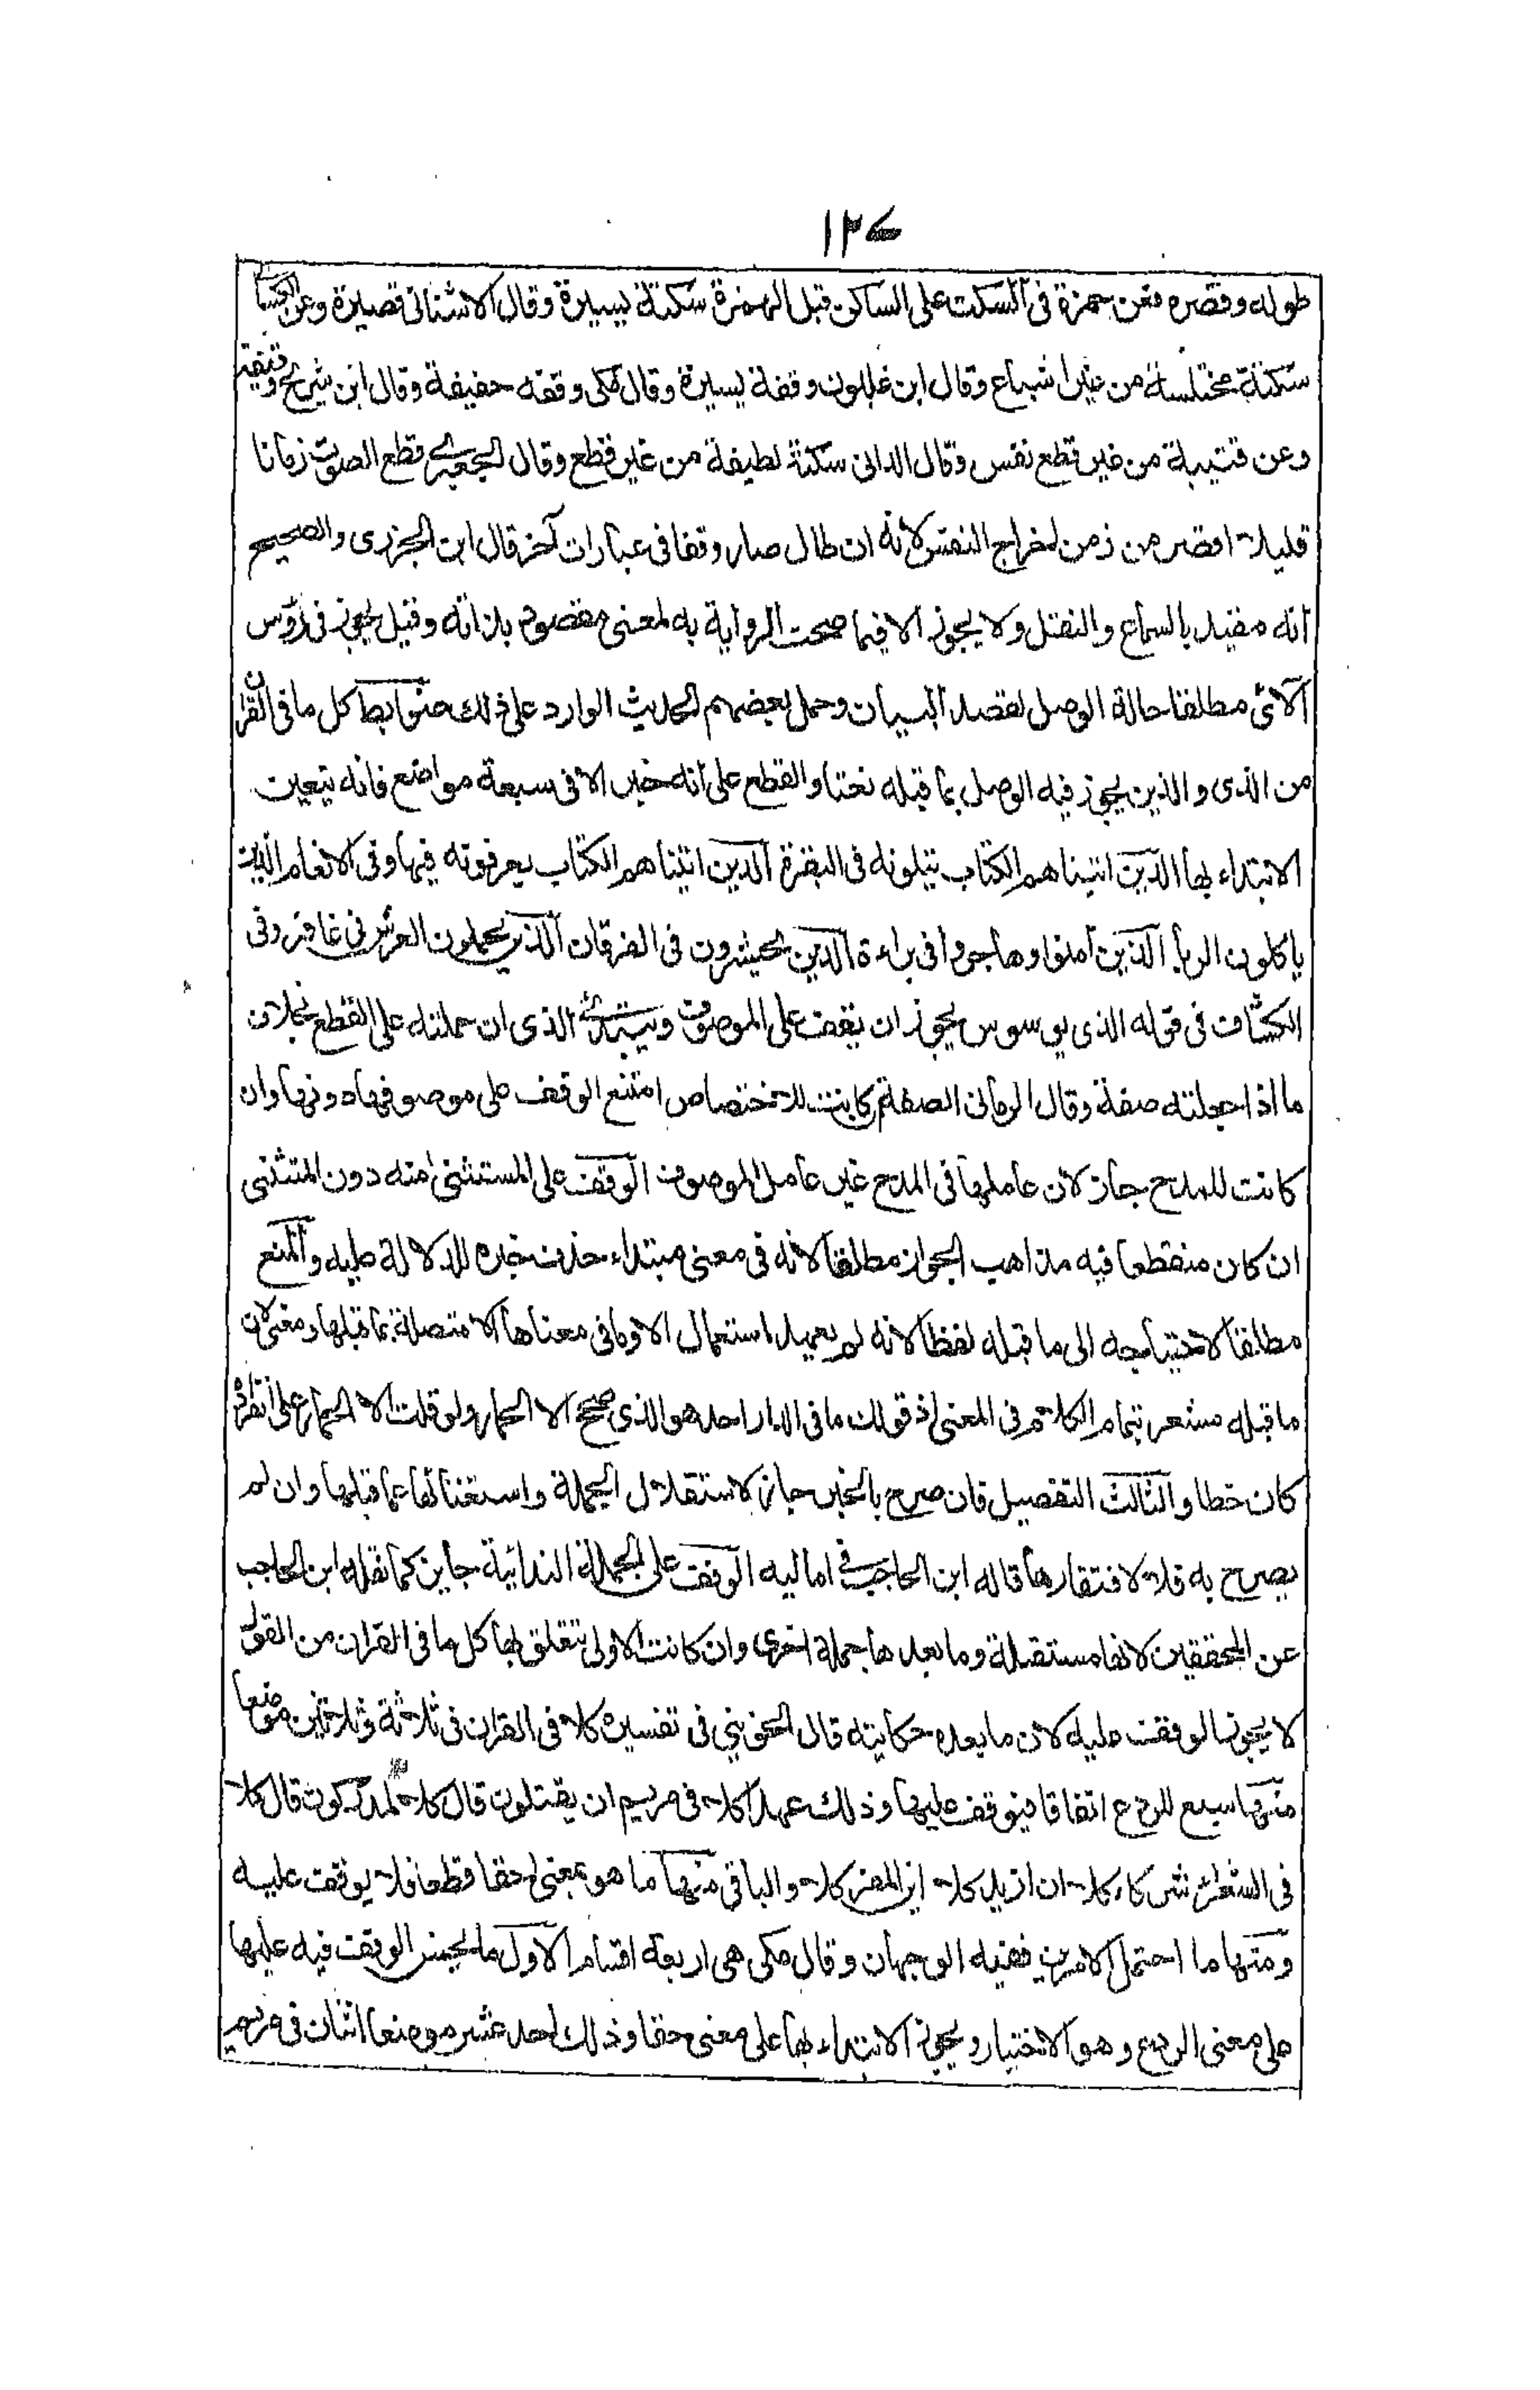 ١٢٧
طوله وقصره فعن حمزة فى السكت على الساكن قبل الهمزة سكتة يسيرة وقال الاشنانى قصيرة وعن الكسائى
سكتة مختلسة من غير اشباع وقال ابن غلبون وقفة يسيرة وقال مكى وقفه خفيفة وقال ابن شريح وقيفة
وعن قتيبة من غير قطع نفس وقال الدانى سكتة لطيفة من غير قطع وقال الجعبرى قطع الصوت زمانا
قليلا اقصر من زمن اخراج النفس لانه ان طال صار وقفا فى عبارات آخر قال ابن الجزرى والصحيح
انه مقيد بالسماع والنقل ولا يجوز الا فيما صحت الرواية به لمعنى مقصود بذاته وقيل يجوز فى رؤس
الآى مطلقا حالة الوصل لقصد البيان وحمل بعضهم الحديث الوارد على ذلك ضوابط كل ما فى القران
من الذى والذين يجوز فيه الوصل بما قبله نعتا والقطع على انه خبر الا فى سبعة مواضع فانه يتعين
الابتداء بها الذين اتيناهم الكتاب يتلونه فى البقرة الذين اتيناهم الكتاب يعرفونه فيها وفى الانعام الذين
ياكلون الربا الذين آمنوا وهاجروا فى براءة الذين يحشرون فى الفرقان الذين يحملون العرش فى غافر وفى
الكشاف فى قوله الذى يوسوس يجوز ان يقف على الموصوف ويبتدئ الذى ان حملته على القطع بخلاف
ما اذا جعلته صفة وقال الرمانى الصفة ان كانت للاختصاص امتنع الوقف على موصوفها دونها وان
كانت للمدح جاز لان عاملها فى المدح غير عامل الموصوف الوقف على المستثنى منه دون المستثنى
ان كان منقطعا فيه مذاهب الجواز مطلقا لانه فى معنى مبتداء حذف خبره للدلالة عليه والمنع
مطلقا لاحتياجه الى ما قبله لفظا لانه لم يعهد استعمال الا وما فى معناها الا متصلة بما قبلها ومعنى لان
ما قبله مشعر بتمام الكلام فى المعنى اذ قولك ما فى الدار احد هو الذى صحح الا الحمار ولو قلت الا الحمار على انفراده
كان خطا والثالث التفصيل فان صرح بالخبر جاز لاستقلال الجملة واستغنائها عما قبلها وان لم
يصرح به فلا لافتقارها قاله ابن الحاجب فى اماليه الوقف على الجملة الندائية جايز كما نقله ابن الحاجب
عن المحققين لانها مستقلة وما بعدها جملة اخرى وان كانت الاولى تتعلق بها كل ما فى القران من القول
لا يجوز الوقف عليه لان ما بعده حكايته قال الجوينى فى تفسيره كلا فى القران فى ثلاثة وثلاثين موضعا
منها سبع للردع اتفاقا فيوقف عليها وذلك عهدا كلا فى مريم ان يقتلون قال كلا لمدركون قال كلا
فى الشعراء شركاء كلا ان ازيد كلا اين المفر كلا والباقى منها ما هو بمعنى حقا قطعا فلا يوقف عليه
ومنها ما احتمل الامرين ففيه الوجهان وقال مكى هى اربعة اقسام الاول ما يحسن الوقف فيه عليها
على معنى الردع وهو الاختيار ويجوز الابتداء بها على معنى حقا وذلك احد عشر موضعا اثنان فى مريم